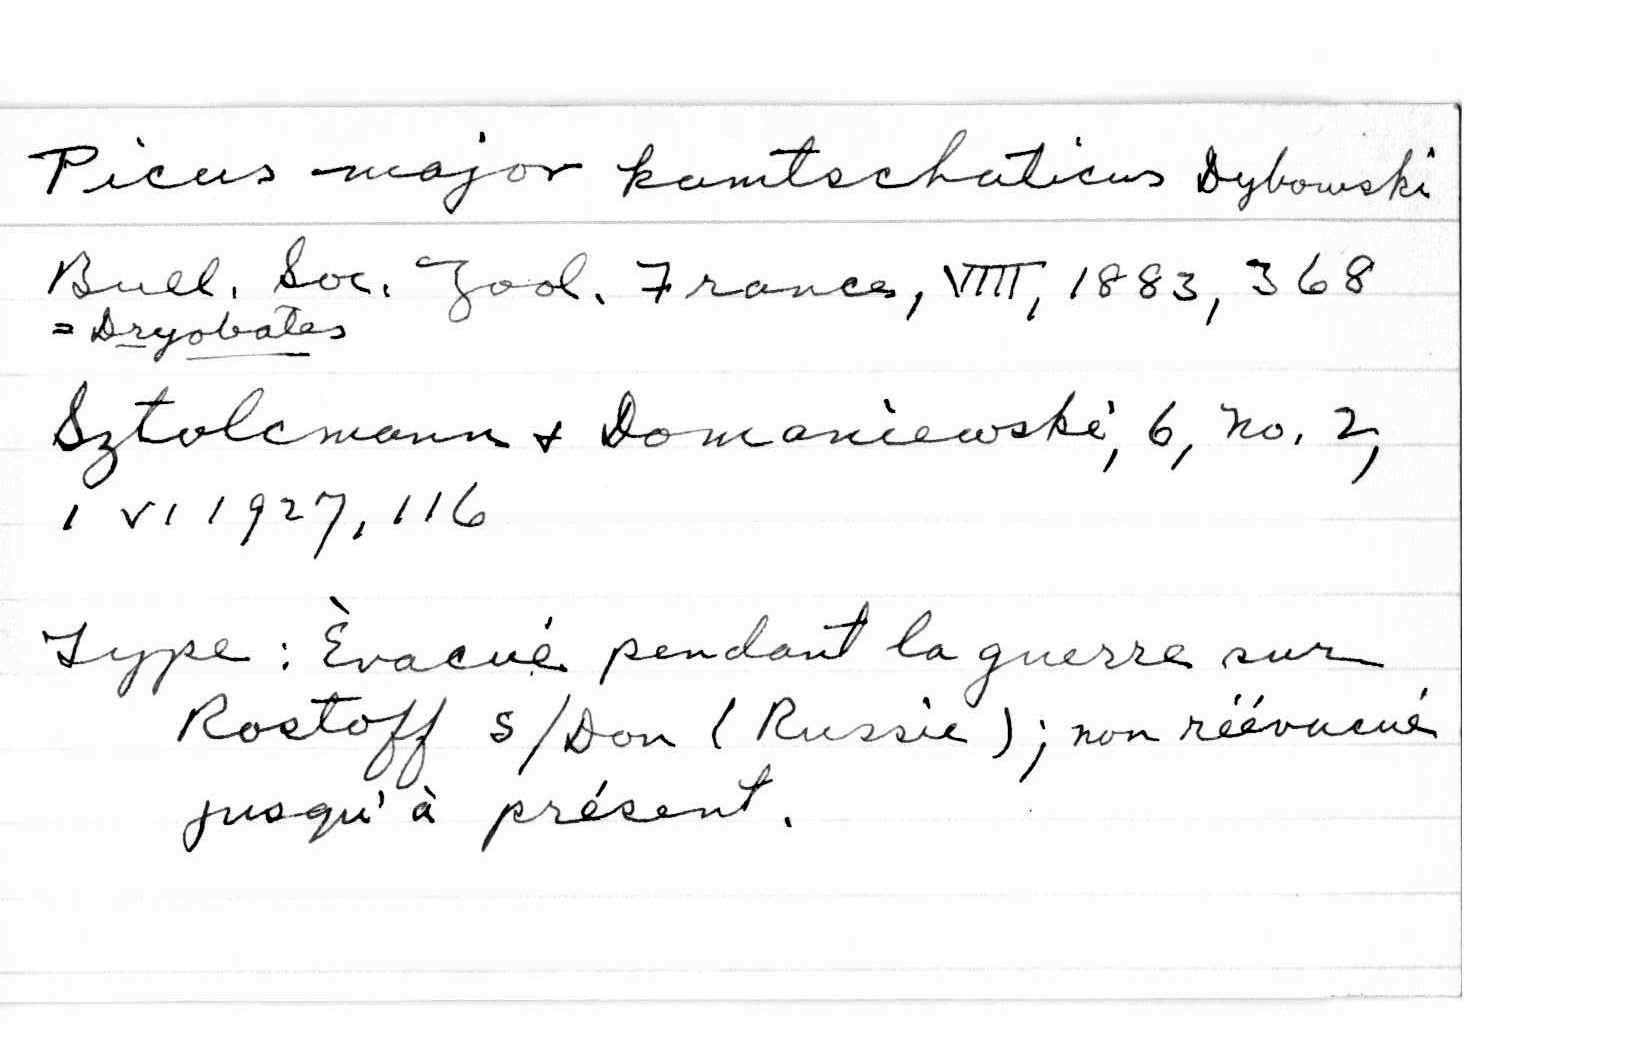 Picus major kamtschaticus Dybowski
Bull. Soc. Zool. France, VIII, 1883, 368
= Dryobates
Sztolcmann & Domaniewski, 6, No. 2,
1 VI 1927, 116
Type: Èvacué pendant la guerre sur
Rostoff s/Don (Russie); non réévacué
jusqu'à présent.